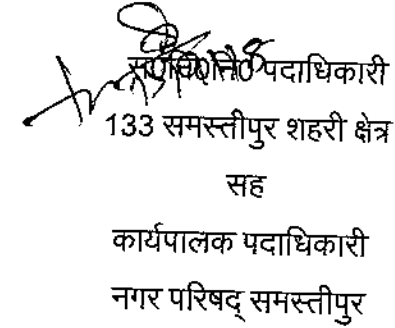 पदाधिकारी
133 समस्तीपुर शहरी क्षेत्र
सह
कार्यपालक पदाधिकारी
नगर परिषद् समस्तीपुर